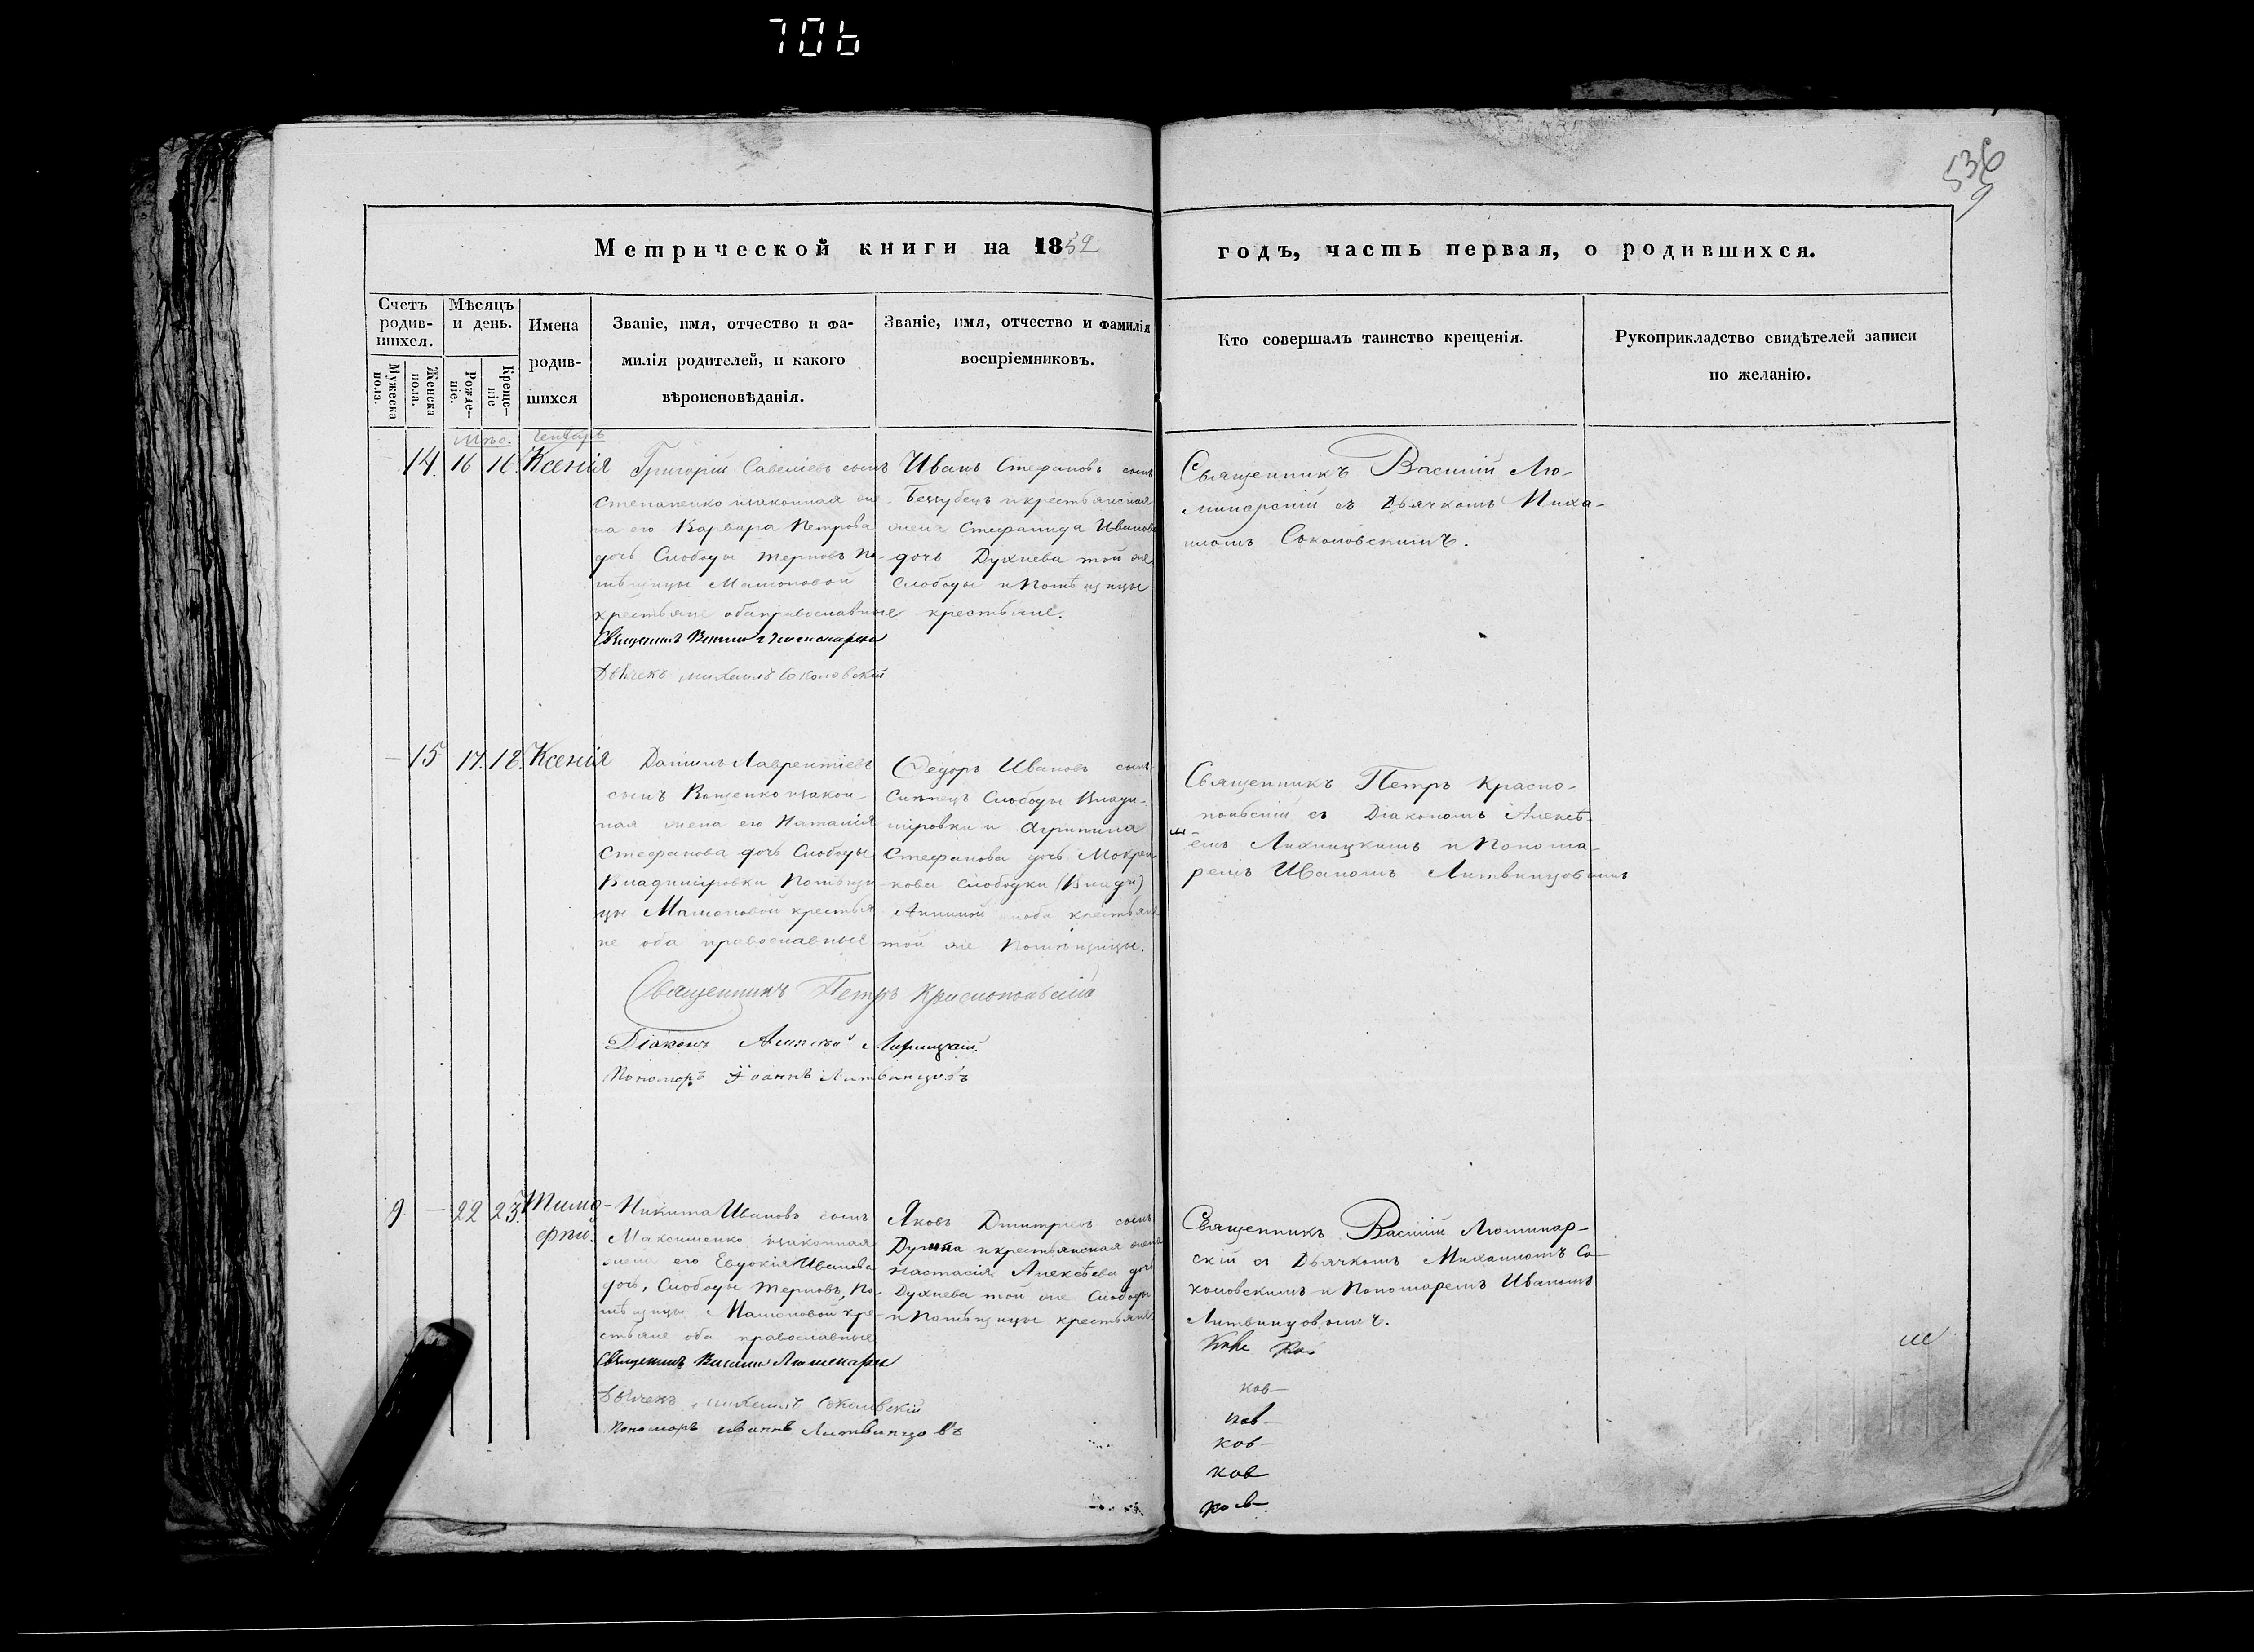 706
536
9
Метрической книги на 1852 годъ, часть первая, о родившихся.
Счетъ родившихся.
Мужеска пола.
Женска пола.
Мѣсяцъ и день.
Рожде-
ніе.
Креще-
ніе
Имена
родив-
шихся
Званіе, имя, отчество и фа-
милія родителей, и какого
вѣроисповѣданія.
Званіе, имя, отчество и фамилія
воспріемниковъ.
Кто совершалъ таинство крещенія.
Рукоприкладство свидѣтелей записи
по желанію.
Мѣс. Генварь
14. 16 16. Ксенія
Григорій Савеліевъ сынъ
Степаненко изаконная же-
на его Варвара Петрова
дочь Слободы Терновъ По-
мѣщицы Мамоновой
крестьяне оба православные
Священникъ Василій
Дьячекъ Михаилъ Соколовскій
Иванъ Стефановъ сынъ
икрестьянская
жена Стефанида Иванова
дочь Духнева той же
Слободы и Помѣщицы
крестьяне.
Священникъ Василій Лю-
минарскій съ Дьячкомъ Миха-
иломъ Соколовскимъ.
15 17. 18. Ксенія
Даніилъ Лаврентіевъ
сынъ Ващенко изакон-
ная жена его Наталія
Стефанова дочь Слободы
Владиміровки Помѣщи-
цы Мамоновой крестья-
не оба православные
Священникъ Петръ Краснопольскій
Діаконъ Алексѣй
Пономарь Іоаннъ Литвинцовъ
Федоръ Ивановъ сынъ
Слободы Влади-
міровки и Агрипина
Стефанова дочь
Слободки (Влади)
оба крестьяне
той же Помѣщицы.
Священникъ Петръ Красно-
польскій съ Діакономъ Алексѣ-
емъ Лихницкимъ и Понома-
ремъ Иваномъ Литвинцовымъ
9 — 22 23. Тимо-
фей.
Никита Ивановъ сынъ
Максименко изаконная
жена его Евдокія Иванова
дочь, Слободы Терновъ, По-
мѣщицы Мамоновой кре-
стьяне оба православные
Священникъ Василій
Дьячекъ Михаилъ Соколовскій
Пономарь Іоаннъ Литвинцовъ
Яковъ Дмитріевъ сынъ
икрестьянская жена
Настасія Алексѣева дочь
Духнева той же Слободы
и Помѣщицы крестьяне.
Священникъ Василій Люминар-
скій съ Дьячкомъ Михаиломъ Со-
коловскимъ и Пономаремъ Иваномъ
Литвинцовымъ.
ков-
ков-
ков-
ков
ков-